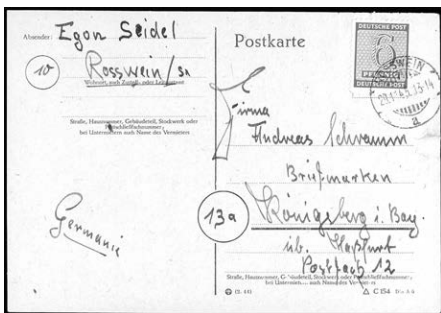 Absender: Egon Seidel
10 Rosswein/Sa
Wohnort, auch Zustell- oder Leitpostamt
Straße, Hausnummer, Gebäudeteil, Stockwerk oder
Postschließfachnummer;
bei Untermietern auch Name des Vermieters
Germanie
Postkarte
DEUTSCHE POST
6
PFENNIG
DEUTSCHE POST
ROSSWEIN
a
Firma
Andreas Schramm
Briefmarken
13a Königsberg i. Bay.
üb. Haßfurt
Postfach 12
Straße, Hausnummer, Gebäudeteil, Stockwerk oder
bei Untermietern auch Name des Vermieters
C 154 Din A 6